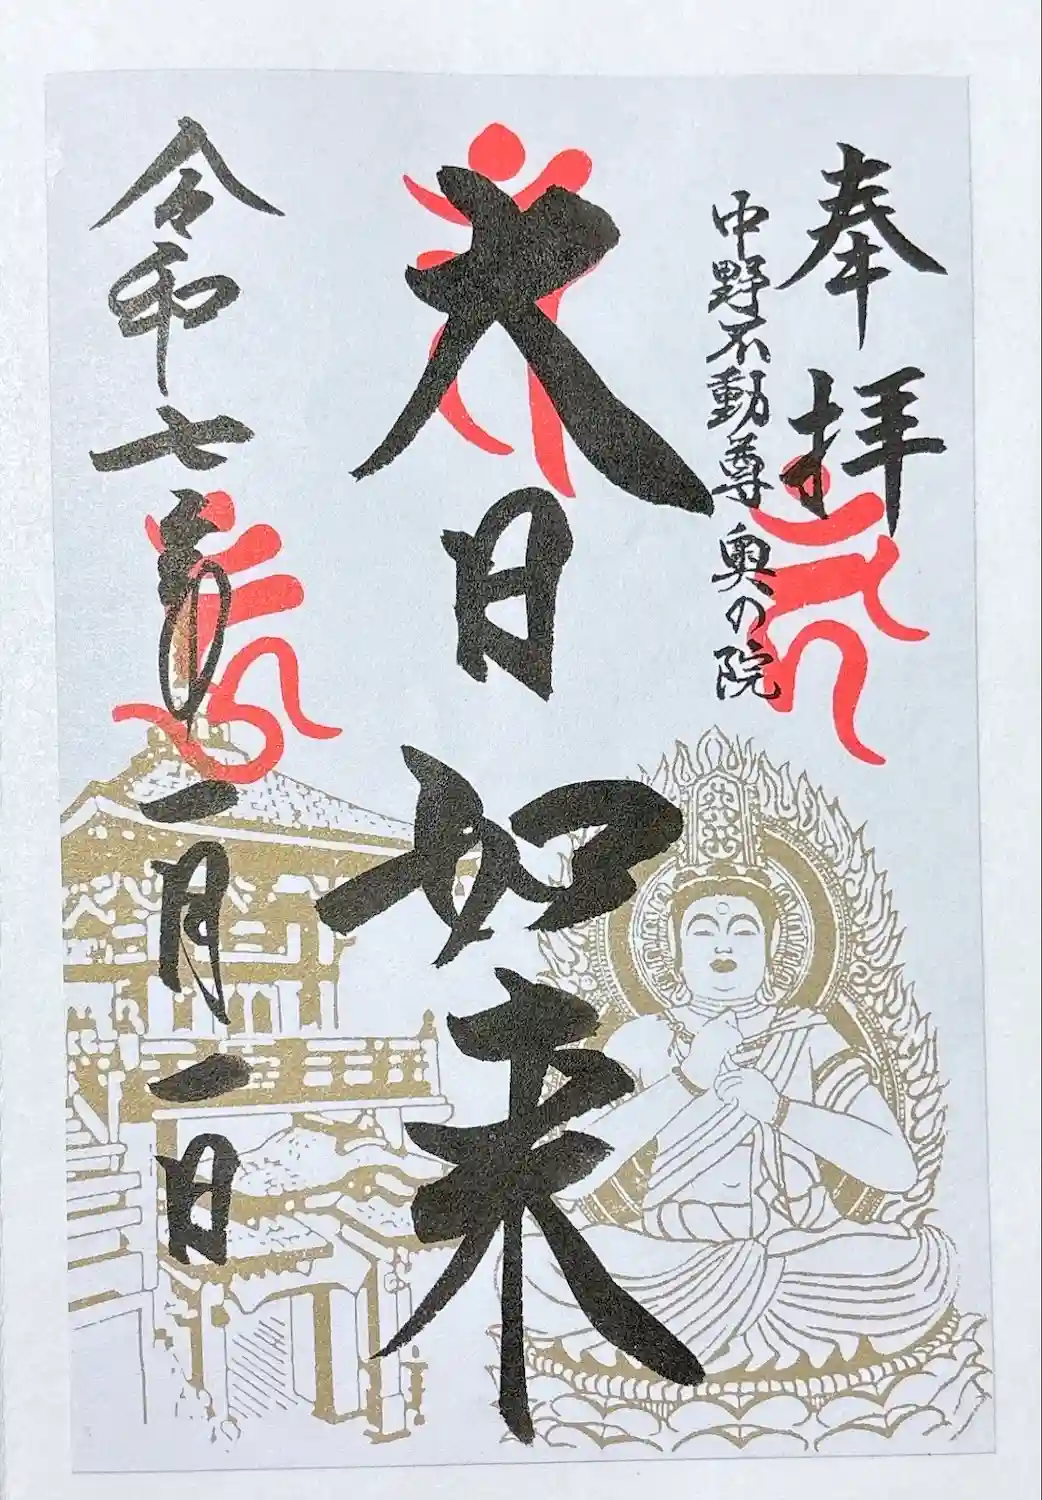 奉拝
中野不動尊 奥の院
大日如来
令和七年一月一日